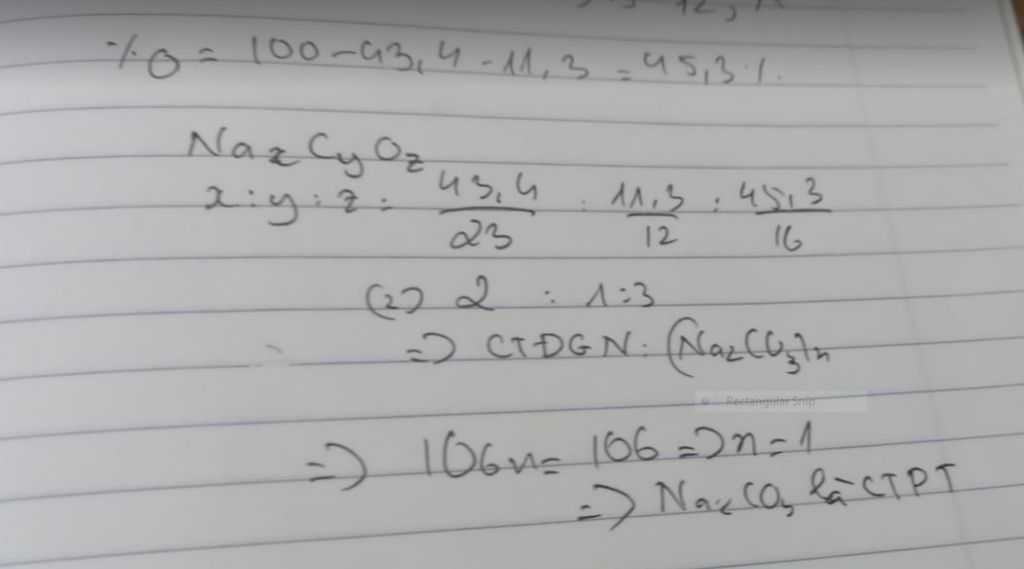 %O = 100 - 43,4 - 11,3 = 45,3%.
NaxCyOz
x : y : z = 43,4/23 : 11,3/12 : 45,3/16
(=) 2 : 1 : 3
=> CTĐGN: (Na2CO3)n
Rectangular Snip
=> 106n = 106 => n = 1
=> Na2CO3 là CTPT